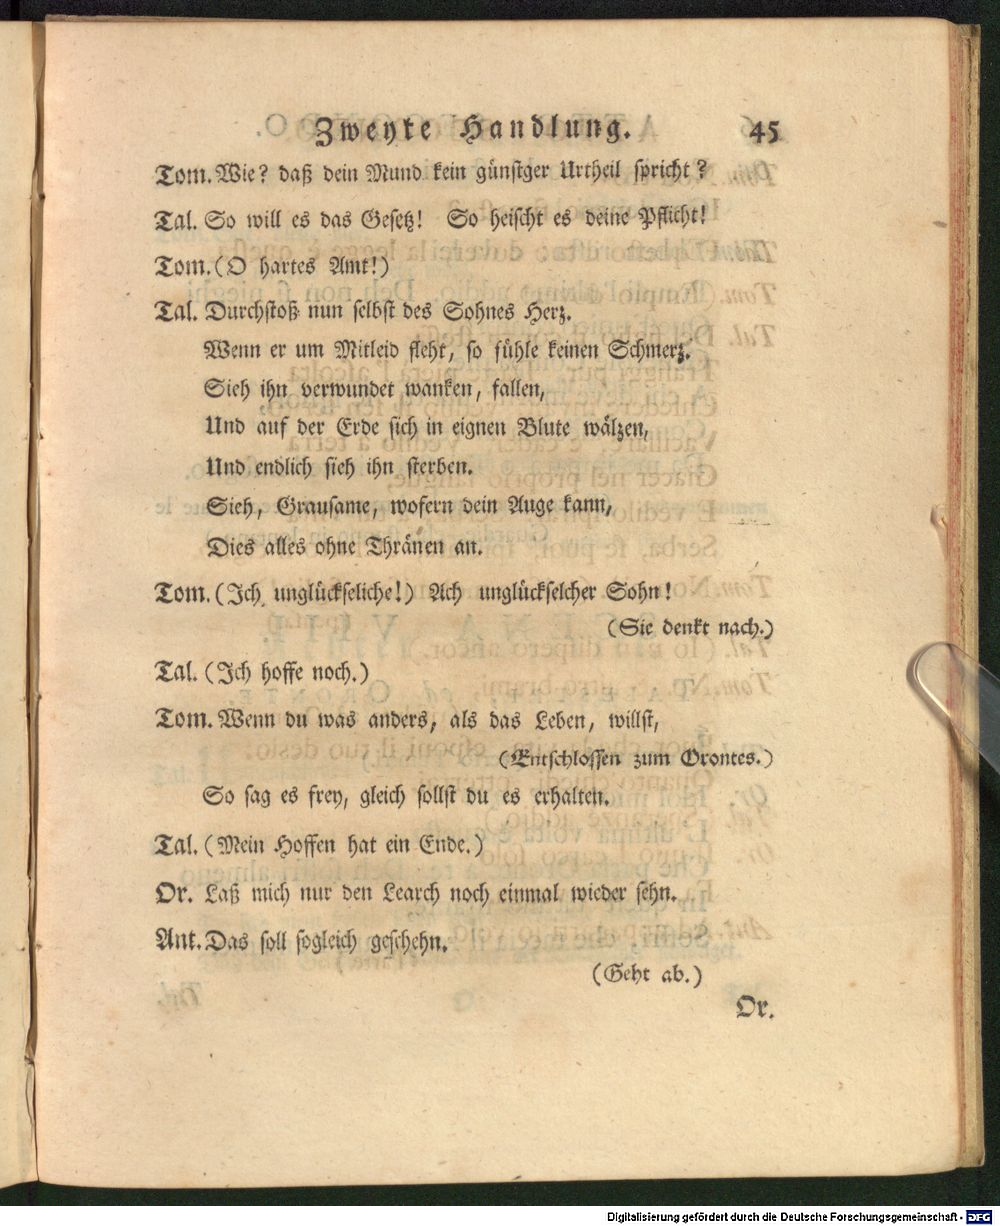 Zweyte Handlung. 45
Tom. Wie? daß dein Mund kein günstger Urtheil spricht?
Tal. So will es das Gesetz! So heischt es deine Pflicht!
Tom. (O hartes Amt!)
Tal. Durchstoß nun selbst des Sohnes Herz.
Wenn er um Mitleid fleht, so fühle keinen Schmerz.
Sieh ihn verwundet wanken, fallen,
Und auf der Erde sich in eignen Blute wälzen,
Und endlich sieh ihn sterben.
Sieh, Grausame, wofern dein Auge kann,
Dies alles ohne Thränen an.
Tom. (Ich unglückseliche!) Ach unglückselcher Sohn!
(Sie denkt nach.)
Tal. (Ich hoffe noch.)
Tom. Wenn du was anders, als das Leben, willst,
(Entschlossen zum Orontes.)
So sag es frey, gleich sollst du es erhalten.
Tal. (Mein Hoffen hat ein Ende.)
Or. Laß mich nur den Learch noch einmal wieder sehn.
Ant. Das soll sogleich geschehn.
(Geht ab.)
Or.
Digitalisierung gefördert durch die Deutsche Forschungsgemeinschaft - DFG